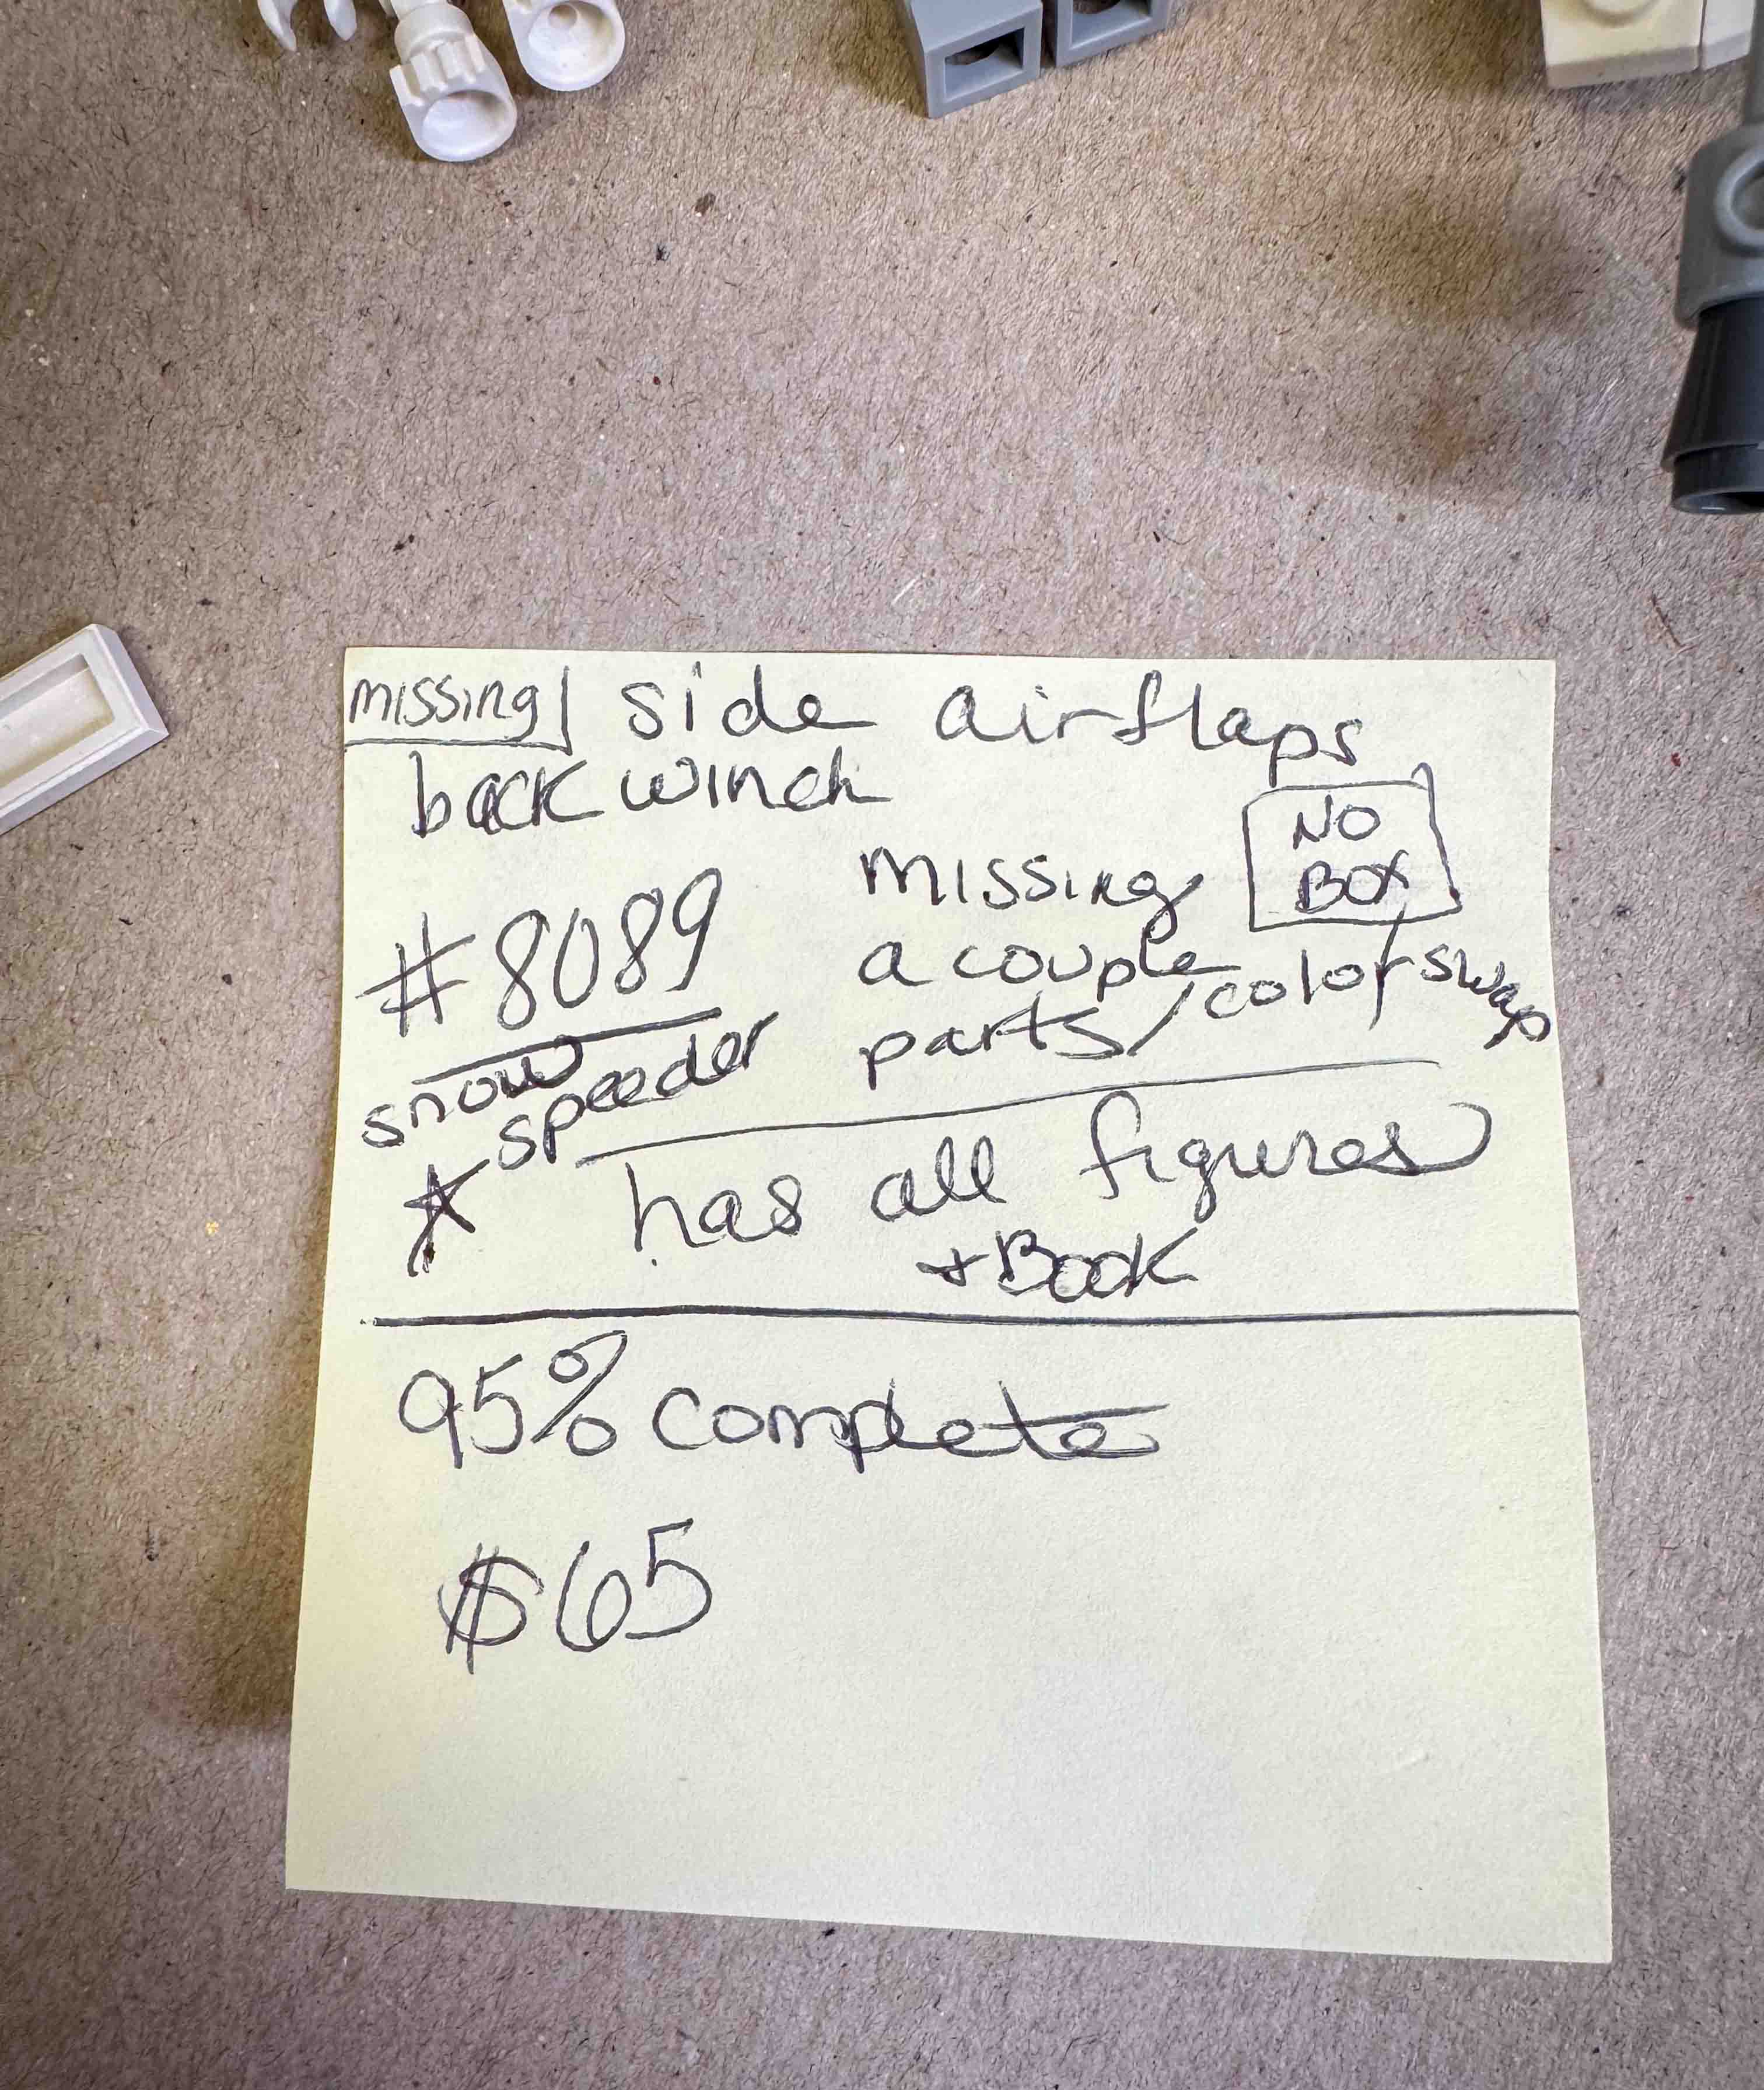 missing| side airflaps
back winch
NO
BOX
#8089
snow
speeder
missing
a couple
parts/color swap
* has all figures
+ Book
95% complete
$65